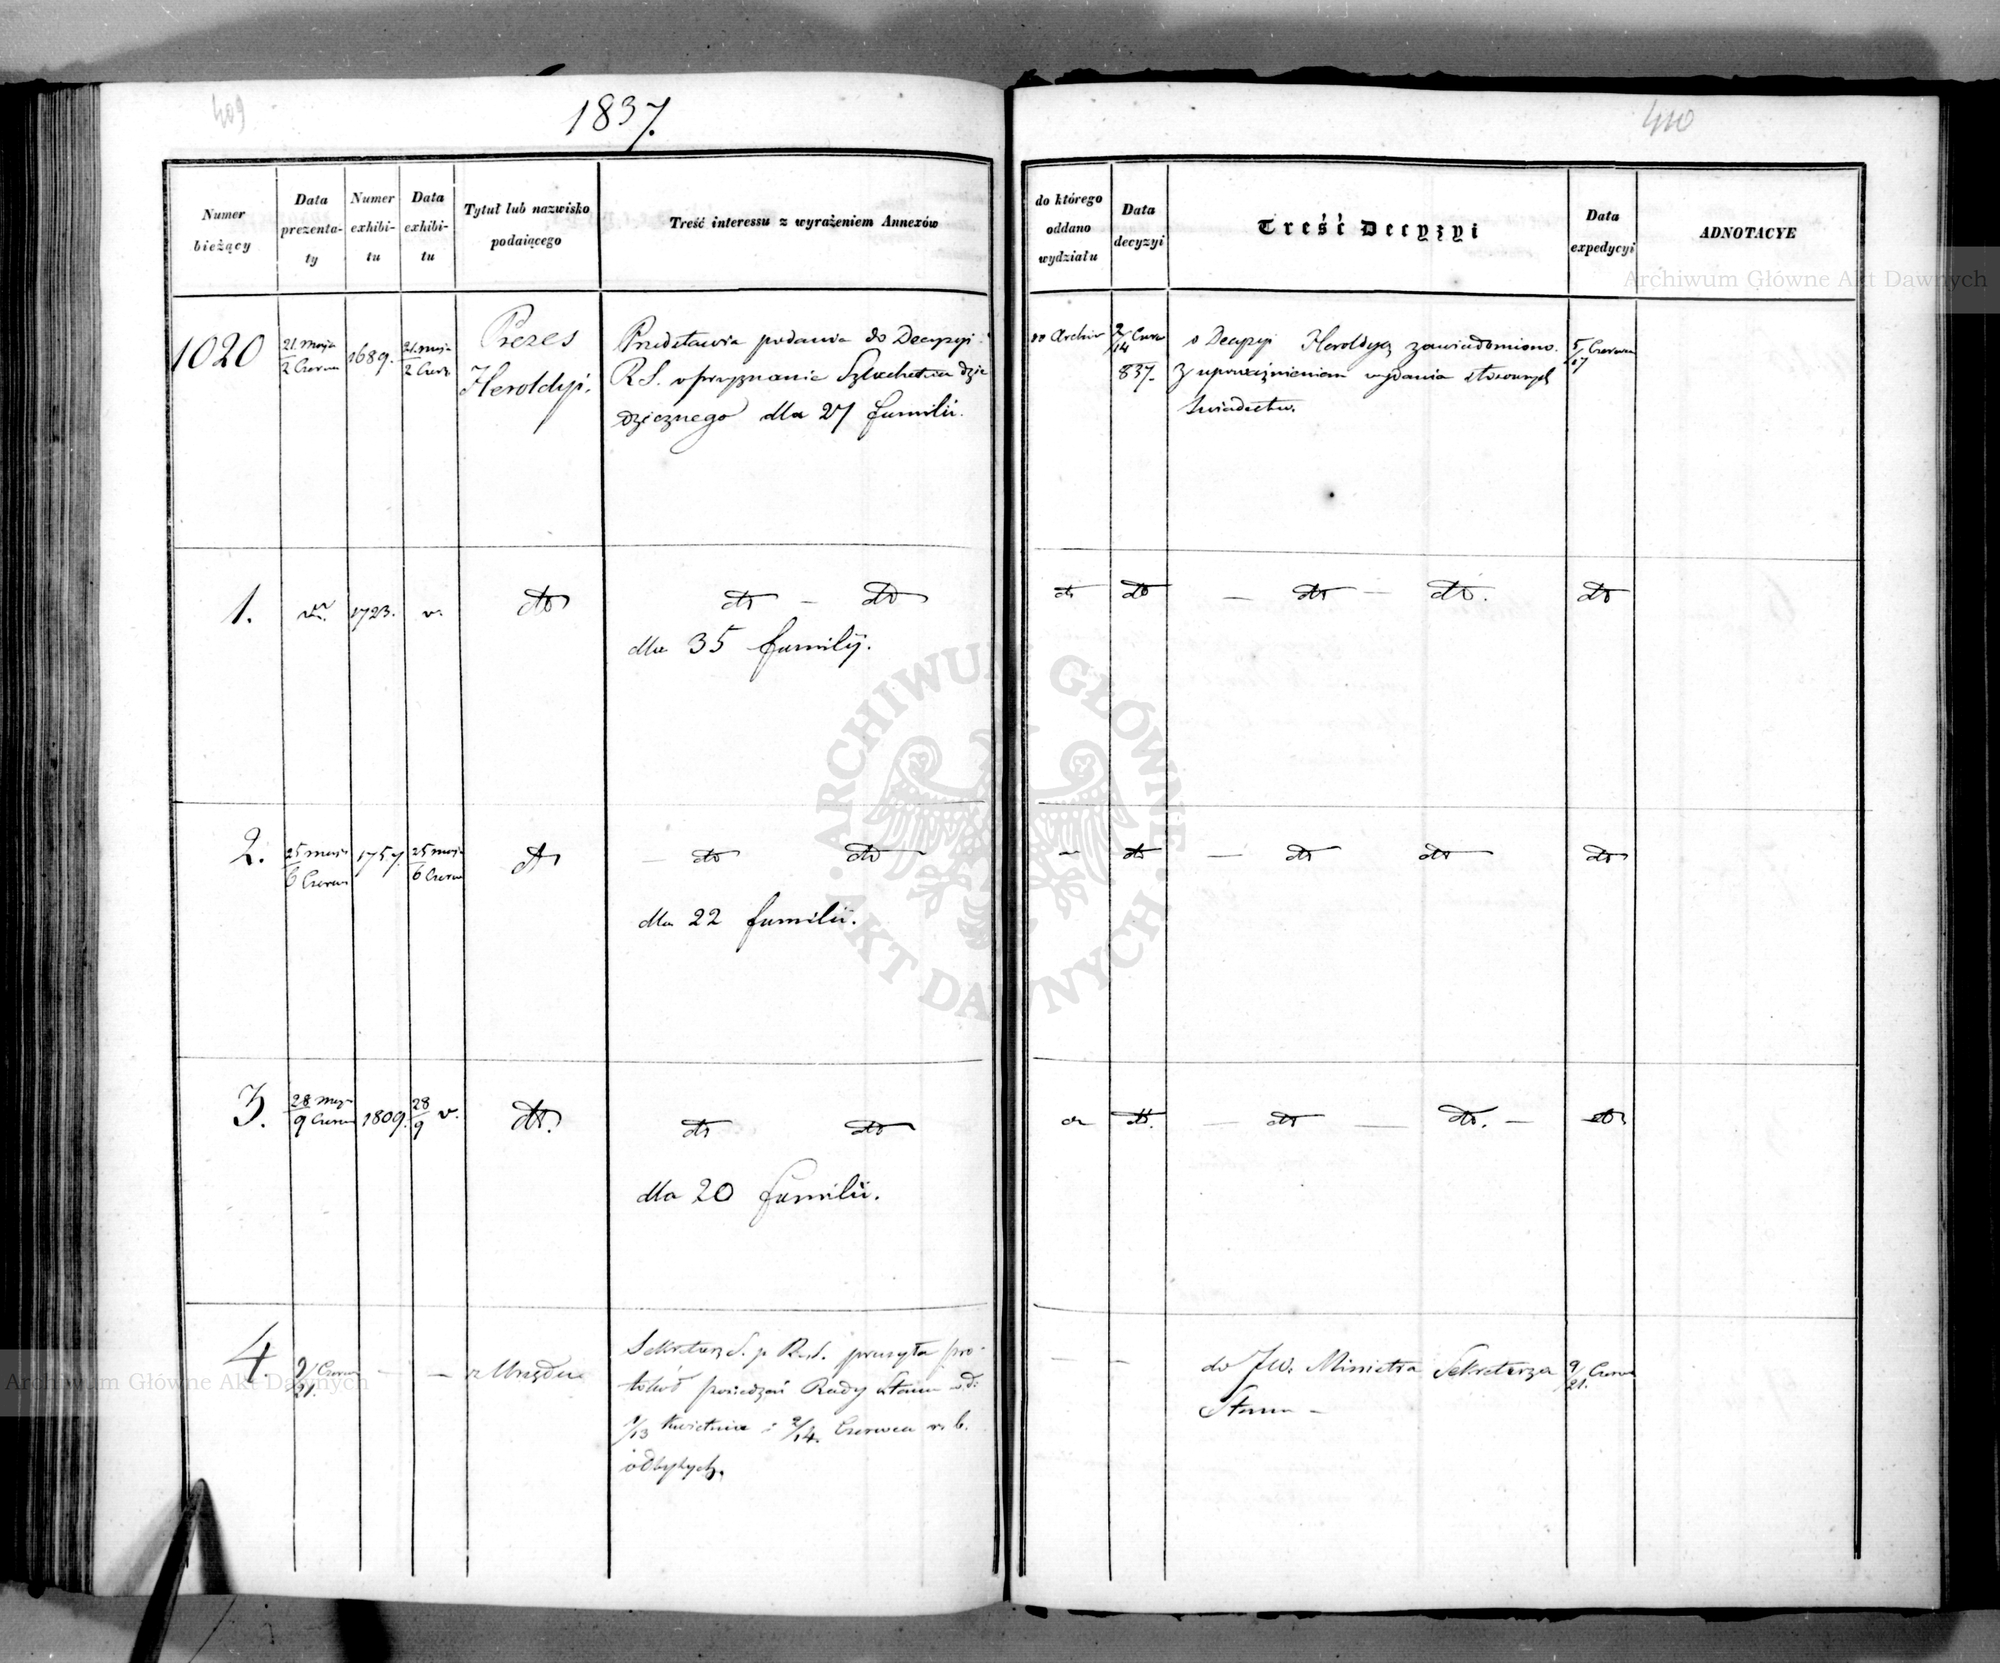 409
1837.
Numer bieżący
Data prezenta-ty
Numer exhibi-tu
Data exhibi-tu
Tytuł lub nazwisko podaiącego
Treść interessu z wyrażeniem Annexów
1020
21. Maja
2 Czerw
1689.
21. Maja
2 Czer
Prezes
Heroldyi.
Przedstawia podania do Decyzyi
R. S. o przyznanie Szlachectwa dzie
dzicznego dla 27 familii.
1.
1723.
v.
dto
dto — dto
dla 35 familij.
2.
25 Maja
6 Czerw
1757.
25 Maja
6 Czerw
dto
— dto dto
dla 22 familii.
3.
28 Maja
9 Czerw
1809.
28
9
v.
dto.
dto dto
dla 20 familii.
4.
9/21. Czerw
—
—
z Urzędu
Sekretarz S. p. R. S. przesyła pro-
tokół posiedzeń Rady Stanu w d:
1/13 Kwietnia i 2/14. Czerwca r. b.
odbytych.
410
do którego oddano wydziału
Data decyzyi
Treść Decyzyi
Data expedycyi
ADNOTACYE
do Archiw
2/14 Czerw
837.
o Decyzyi Heroldyą zawiadomiono.
Z upoważnieniem wydania stosownych
świadectw.
5/17 Czerwca
dto
dto
— dto — dto.
dto
—
dto
— dto dto
dto
dto.
— dto — dto. —
dto
—
—
do JW. Ministra Sekretarza
Stanu —
9/21. Czerw
Archiwum Główne Akt Dawnych
ARCHIWUM GŁÓWNE · AKT DAWNYCH ·
Archiwum Główne Akt Dawnych